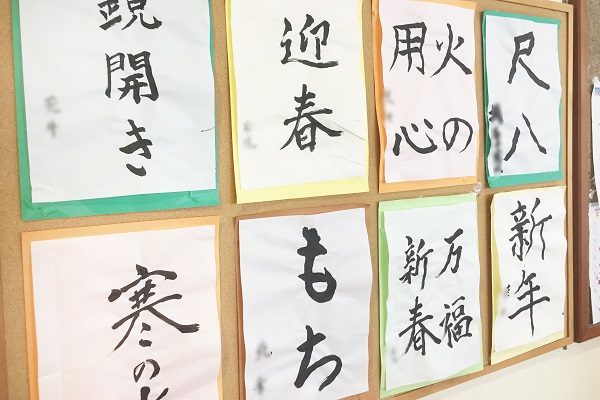 鏡開き
迎春
火の
用心
尺八
寒の
もち
万福
新春
新年